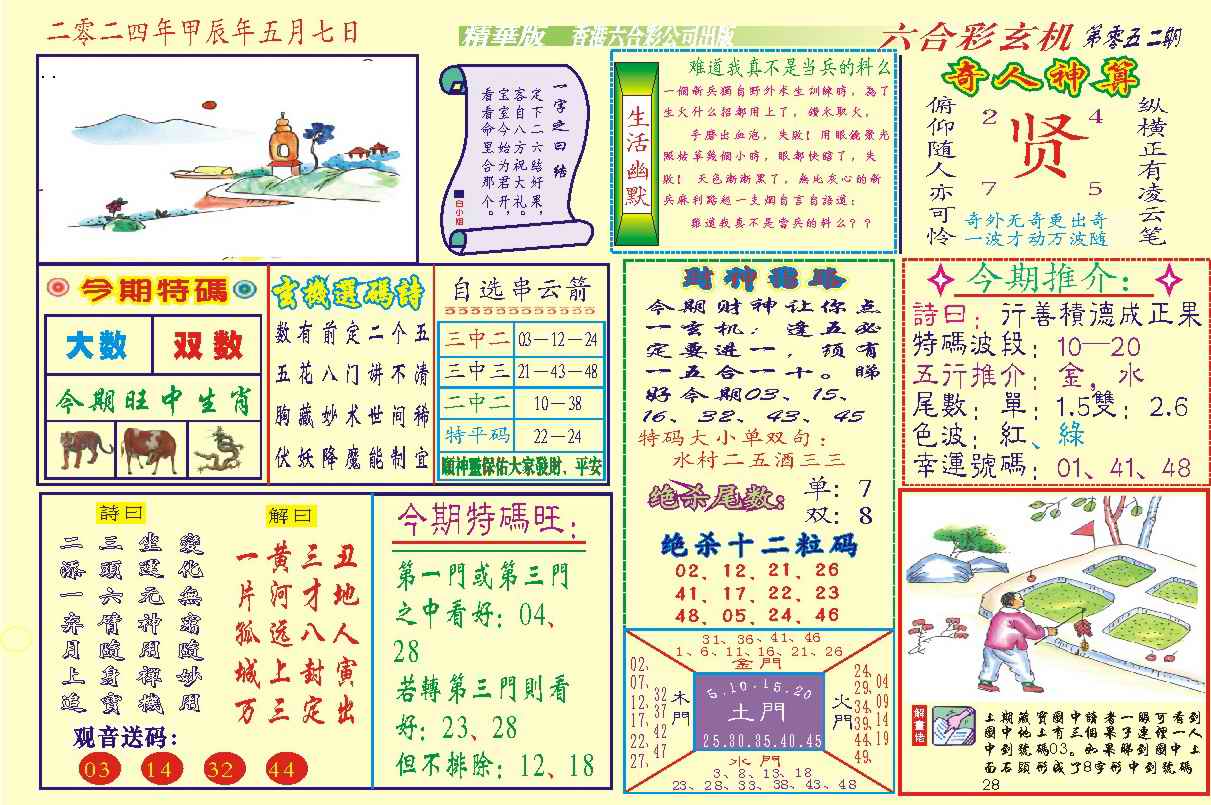 二零二四年甲辰年五月七日
精華版 香港六合彩公司出版
六合彩玄机 第零五二期
一字之曰：结
定下二六结好果，
客自八方祝大礼。
宝宝今始为君开，
看看命里合那个。
白小姐
生活幽默
难道我真不是当兵的料么
一個新兵獨自野外求生訓練時，為了
生火什么招都用上了，鑽木取火，
手磨出血泡，失敗！用眼鏡聚光
照枯草幾個小時，眼都快瞎了，失
敗！天色漸漸黑了，無比灰心的新
兵麻利路起一支烟自言自語道：
難道我真不是當兵的料么？？
奇人神算
俯仰随人亦可怜
2 4
贤
7 5
纵横正有凌云笔
奇外无奇更出奇
一波才动万波随
今期特碼
大数 双数
今期旺中生肖
玄機選碼詩
数有前定二个五
五花八门讲不清
胸藏妙术世间稀
伏妖降魔能制宜
自选串云箭
三中二 03—12—24
三中三 21—43—48
二中二 10—38
特平码 22—24
願神靈保佑大家發財、平安
財神
今期财神让你点
一玄机：逢五必
定要进一，须有
一五合一十。睇
好今期03、15、
16、32、43、45
特码大小单双句：
水村二五酒三三
绝杀尾数：
单：7
双：8
绝杀十二粒码
02、12、21、26
41、17、22、23
48、05、24、46
今期推介：
詩曰：行善積德成正果
特碼波段：10—20
五行推介：金，水
尾數：單：1.5雙：2.6
色波：紅、綠
幸運號碼：01、41、48
詩曰
變化無窮隨妙用
坐運元神用禪機
三頭六臂隨身寶
二添一弃月上追
解曰
丑地人寅出
三才八封定
黄河远上三
一片孤城万
观音送码：
03 14 32 44
今期特碼旺：
第一門或第三門
之中看好：04、
28
若轉第三門則看
好：23、28
但不排除：12、18
31、36、41、46
1、6、11、16、21、26
金門
02、07、12、17、22、27、
32、37、42、47
木門
5.10.15.20
土門
25.30.35.40.45
火門
24、29、34、39、44、49、
04、09、14、19
水門
3、8、13、18
23、28、33、38、43、48
解畫佬
上期藏寶圖中讀者一眼可看到
圖中地上有三個果子連裡一人
中到號碼03。如果睇到圖中上
面石頭形成了8字形中到號碼
28